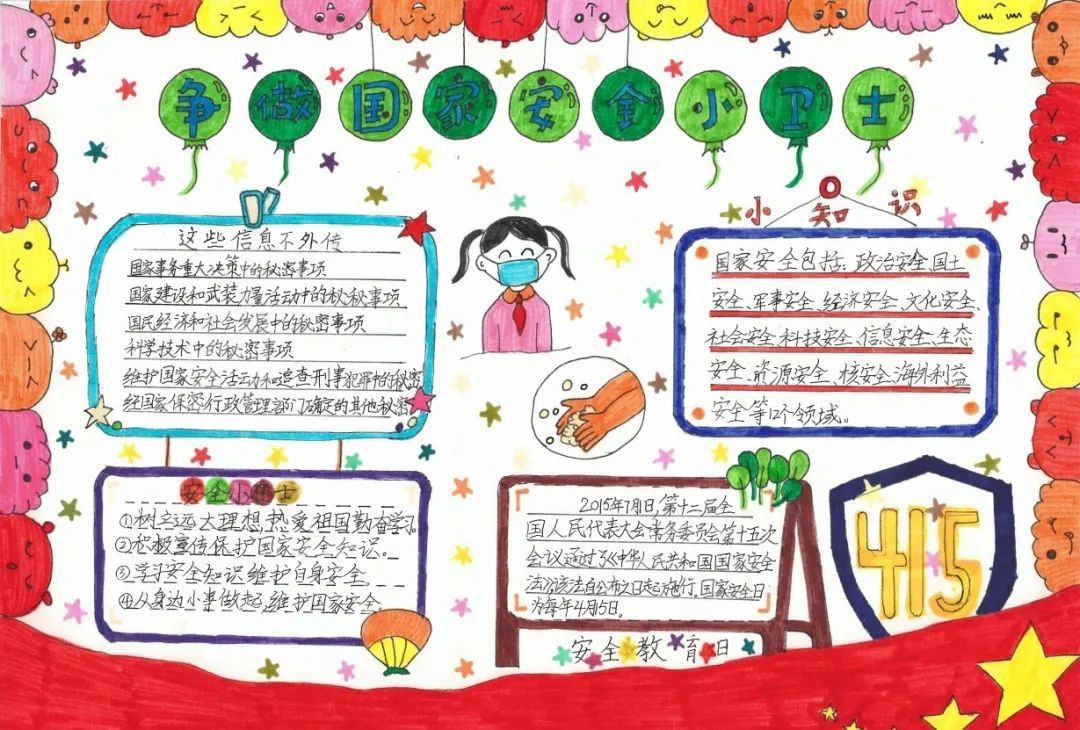 争做国家安全小卫士
这些信息不外传
国家事务重大决策中的秘密事项
国家建设和武装力量活动中的秘秘事项
国民经济和社会发展中的秘密事项
科学技术中的秘密事项
维护国家安全活动和追查刑事犯罪中的秘密
经国家保密行政管理部门确定的其他秘密
小知识
国家安全包括:政治安全、国土
安全、军事安全、经济安全、文化安全、
社会安全、科技安全、信息安全、生态
安全、资源安全、核安全、海外利益
安全等12个领域。
安全小卫士
①树立远大理想,热爱祖国勤奋学习
②积极宣传保护国家安全知识。
③学习安全知识维护自身安全。
④从身边小事做起,维护国家安全。
2015年7月1日,第十二届全
国人民代表大会常务委员会第十五次
会议通过了《中华人民共和国国家安全
法》该法自公布之日起施行,国家安全日
为每年4月15日。
安全教育日
415